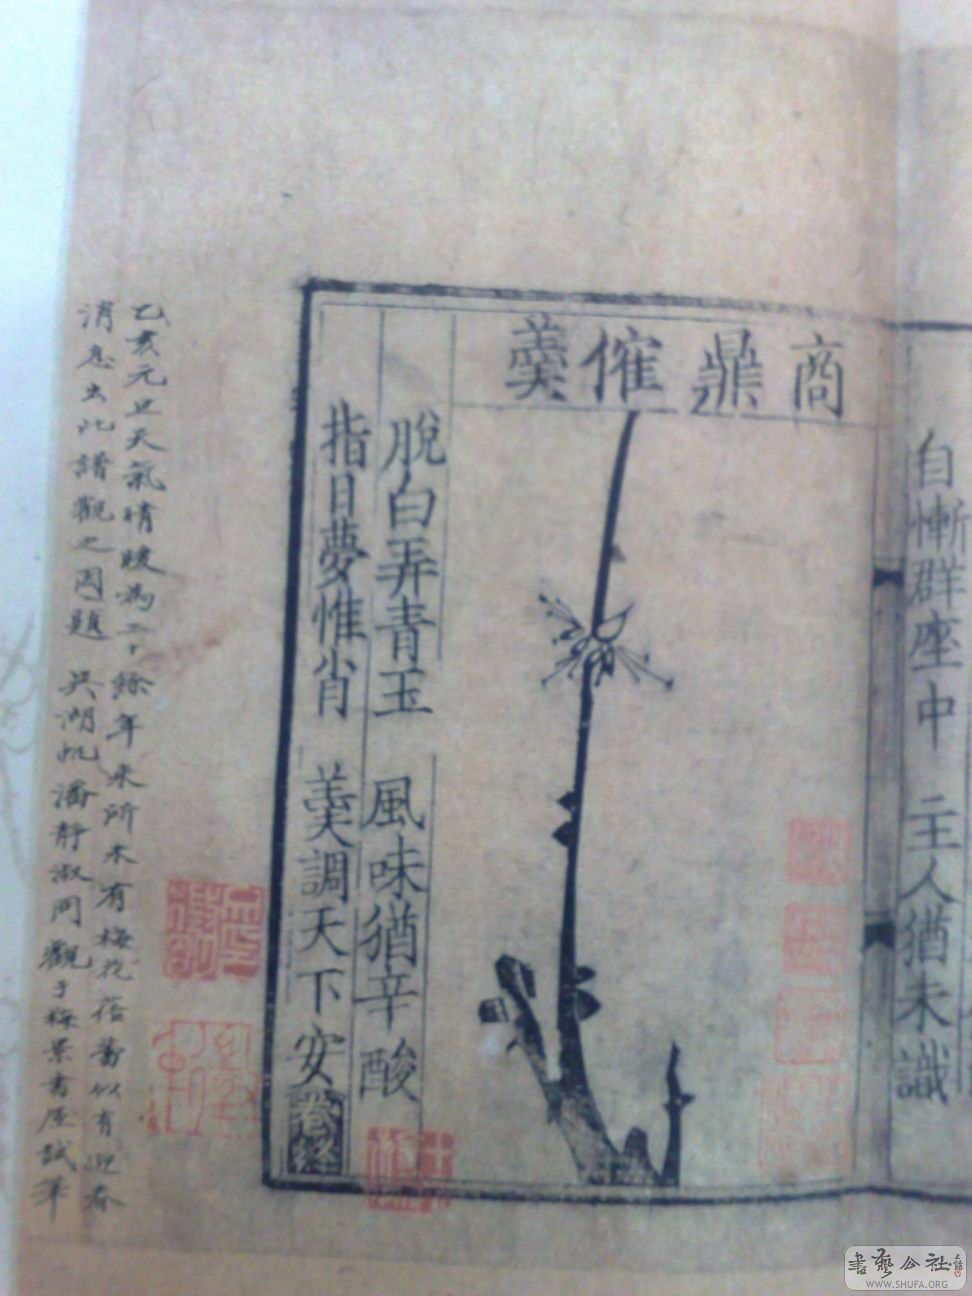 自慚群座中 主人猶未識
商鼎催羹
脫白弄青玉 風味猶辛酸
指日夢惟肖 羹調天下安
卷終
乙亥元旦天氣晴暖為二十餘年來所未有梅花蓓蕾似有迎春
消息出此譜觀之因題 吳湖帆潘靜淑同觀于梅景書屋試筆
書藝公社
WWW.SHUFA.ORG